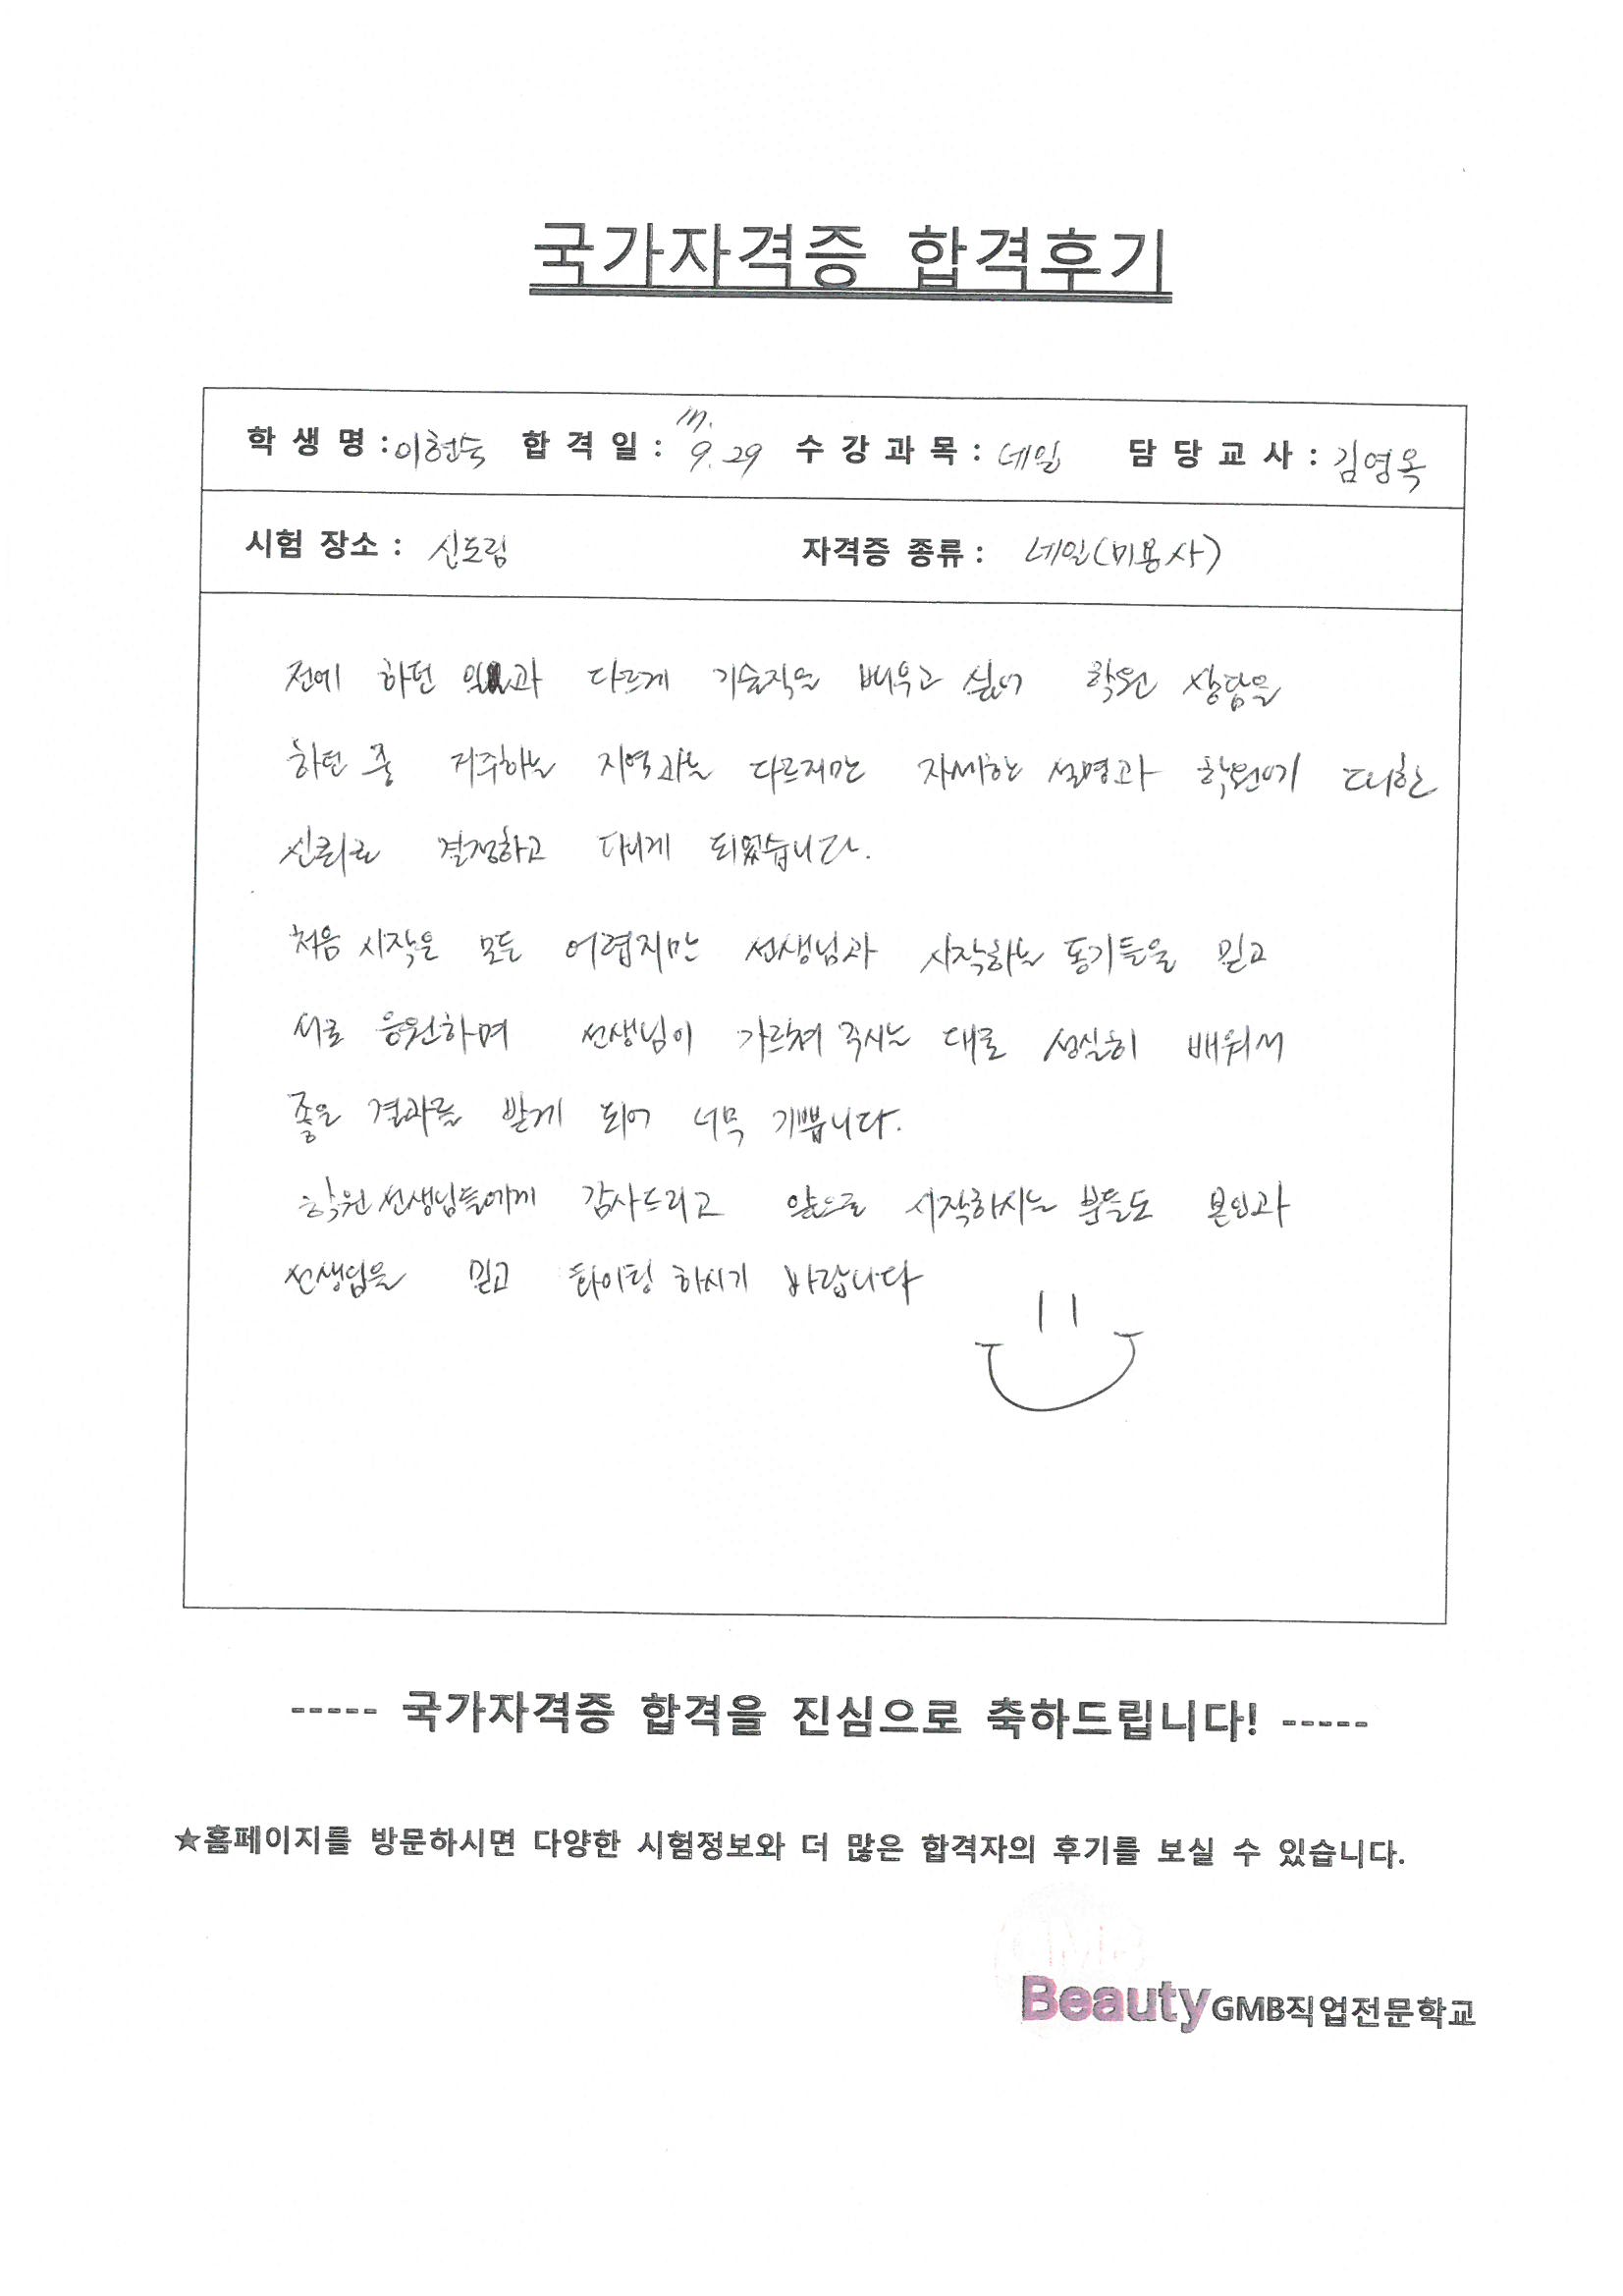 국가자격증 합격후기
학 생 명 : 이현숙 합 격 일 : 17. 9. 29 수 강 과 목 : 네일 담 당 교 사 : 김영옥
시험 장소 : 신도림 자격증 종류 : 네일(미용사)
전에 하던 일과 다르게 기술직을 배우고 싶어 학원 상담을
하던 중 거주하는 지역과는 다르지만 자세한 설명과 학원에 대한
신뢰로 결정하고 다니게 되었습니다.
처음 시작은 모든 어렵지만 선생님과 시작하는 동기들을 믿고
서로 응원하며 선생님이 가르쳐 주시는 대로 성실히 배워서
좋은 결과를 받게 되어 너무 기쁩니다.
학원 선생님들에게 감사드리고 앞으로 시작하시는 분들도 본인과
선생님을 믿고 화이팅 하시기 바랍니다
----- 국가자격증 합격을 진심으로 축하드립니다! -----
★홈페이지를 방문하시면 다양한 시험정보와 더 많은 합격자의 후기를 보실 수 있습니다.
GMB
Beauty GMB직업전문학교